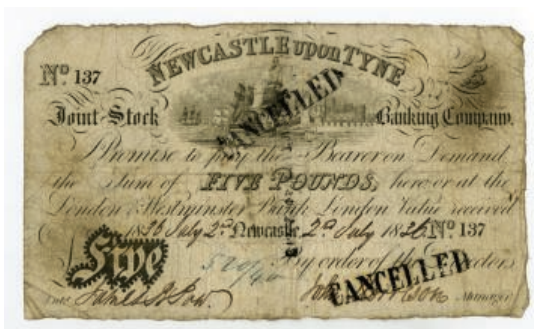 NEWCASTLE upon TYNE
Nº 137
CANCELLED
Joint-Stock Banking Company.
Promise to pay the Bearer on Demand
the Sum of FIVE POUNDS, here or at the
London & Westminster Bank London Value received
1836 July 2ᵈ Newcastle 2ᵈ July 1836 Nº 137
Five By order of the Directors
CANCELLED
James Manager